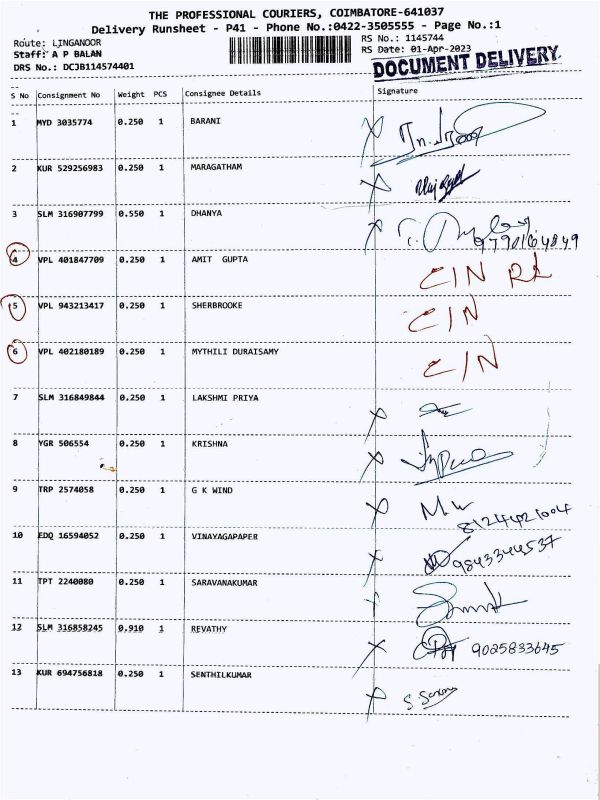 THE PROFESSIONAL COURIERS, COIMBATORE-641037
Delivery Runsheet - P41 - Phone No.:0422-3505555 - Page No.:1
Route: LINGANOOR
RS No.: 1145744
Staff: A P BALAN
RS Date: 01-Apr-2023
DRS No.: DCJB114574401
DOCUMENT DELIVERY.
S No Consignment No Weight PCS Consignee Details Signature
1 MYD 3035774 0.250 1 BARANI
2 KUR 529256983 0.250 1 MARAGATHAM
3 SLM 316907799 0.550 1 DHANYA
9790164849
4 VPL 401847709 0.250 1 AMIT GUPTA CIN
5 VPL 943213417 0.250 1 SHERBROOKE CIN
6 VPL 402180189 0.250 1 MYTHILI DURAISAMY CIN
7 SLM 316849844 0.250 1 LAKSHMI PRIYA
8 YGR 506554 0.250 1 KRISHNA
9 TRP 2574058 0.250 1 G K WIND
8124421004
10 EDQ 16594052 0.250 1 VINAYAGAPAPER
9843344537
11 TPT 2240080 0.250 1 SARAVANAKUMAR
12 SLM 316858245 0.910 1 REVATHY 9025833645
13 KUR 694756818 0.250 1 SENTHILKUMAR